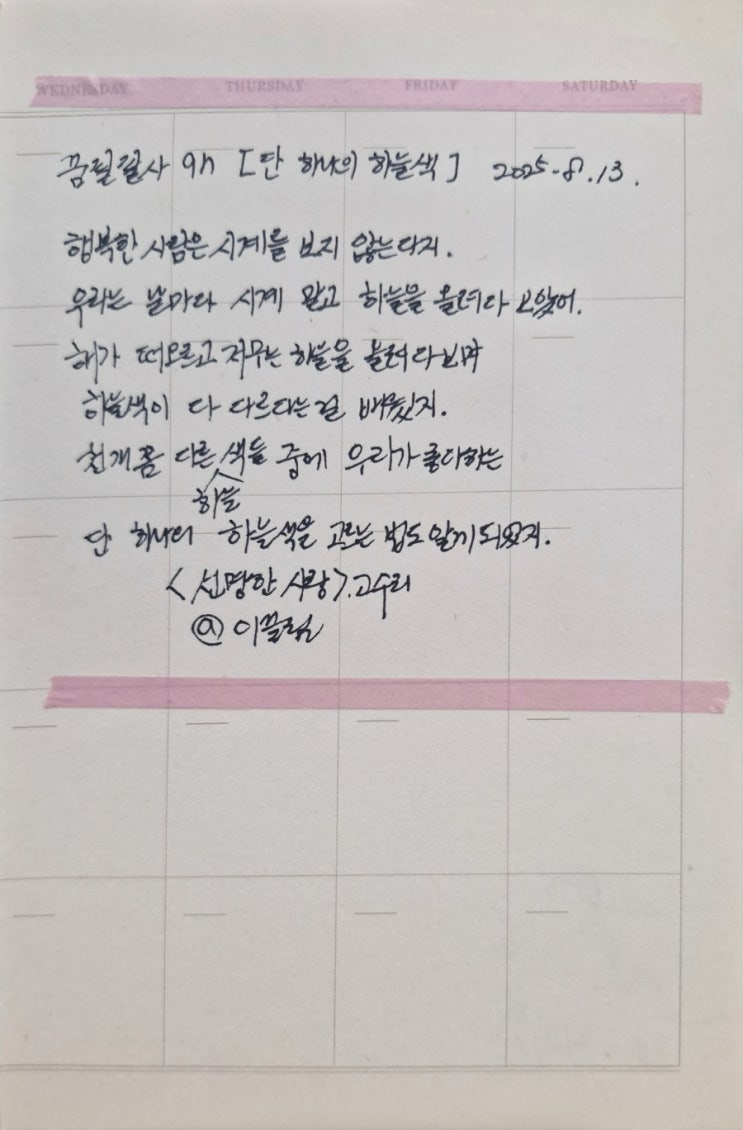 WEDNESDAY THURSDAY FRIDAY SATURDAY
꿈필필사 9기 [단 하나의 하늘색] 2025-8.13.
행복한 사람은 시계를 보지 않는다지.
우리는 날마다 시계 말고 하늘을 올려다 보았어.
해가 떠오르고 저무는 하늘을 올려다보며
하늘색이 다 다르다는걸 배웠지.
천개쯤 다른 색들 중에 우리가 좋아하는
하늘
단 하나의 하늘색을 고르는 법도 알게 되었지.
<선명한 사랑>.고수리
@이끌림